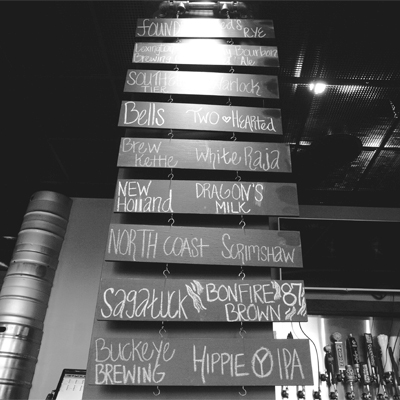 Found RYE
Bourbon
Brewing Ale
SOUTH
TIER
Bells TWO HEARTED
Brew White Raja
Kettle
NEW DRAGON'S
Holland MILK
NORTH COAST Scrimshaw
Sagatuck BONFIRE 87
BROWN
Buckeye HIPPIE IPA
BREWING